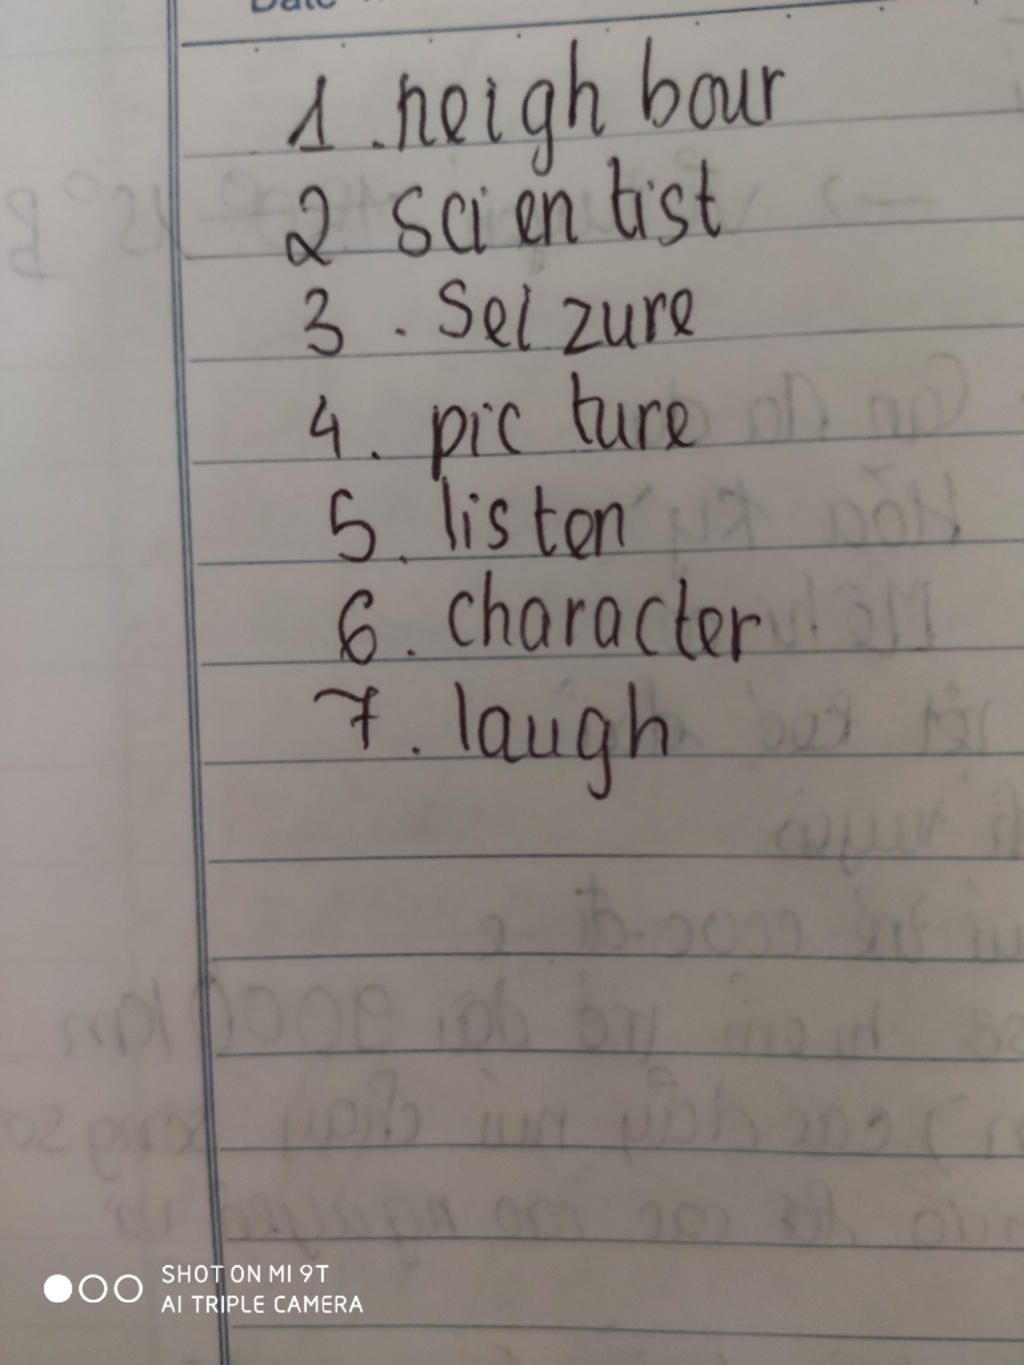 Date
1. neighbour
2 scientist
3. Seizure
4. picture
5. listen
6. character
7. laugh
SHOT ON MI 9T
AI TRIPLE CAMERA